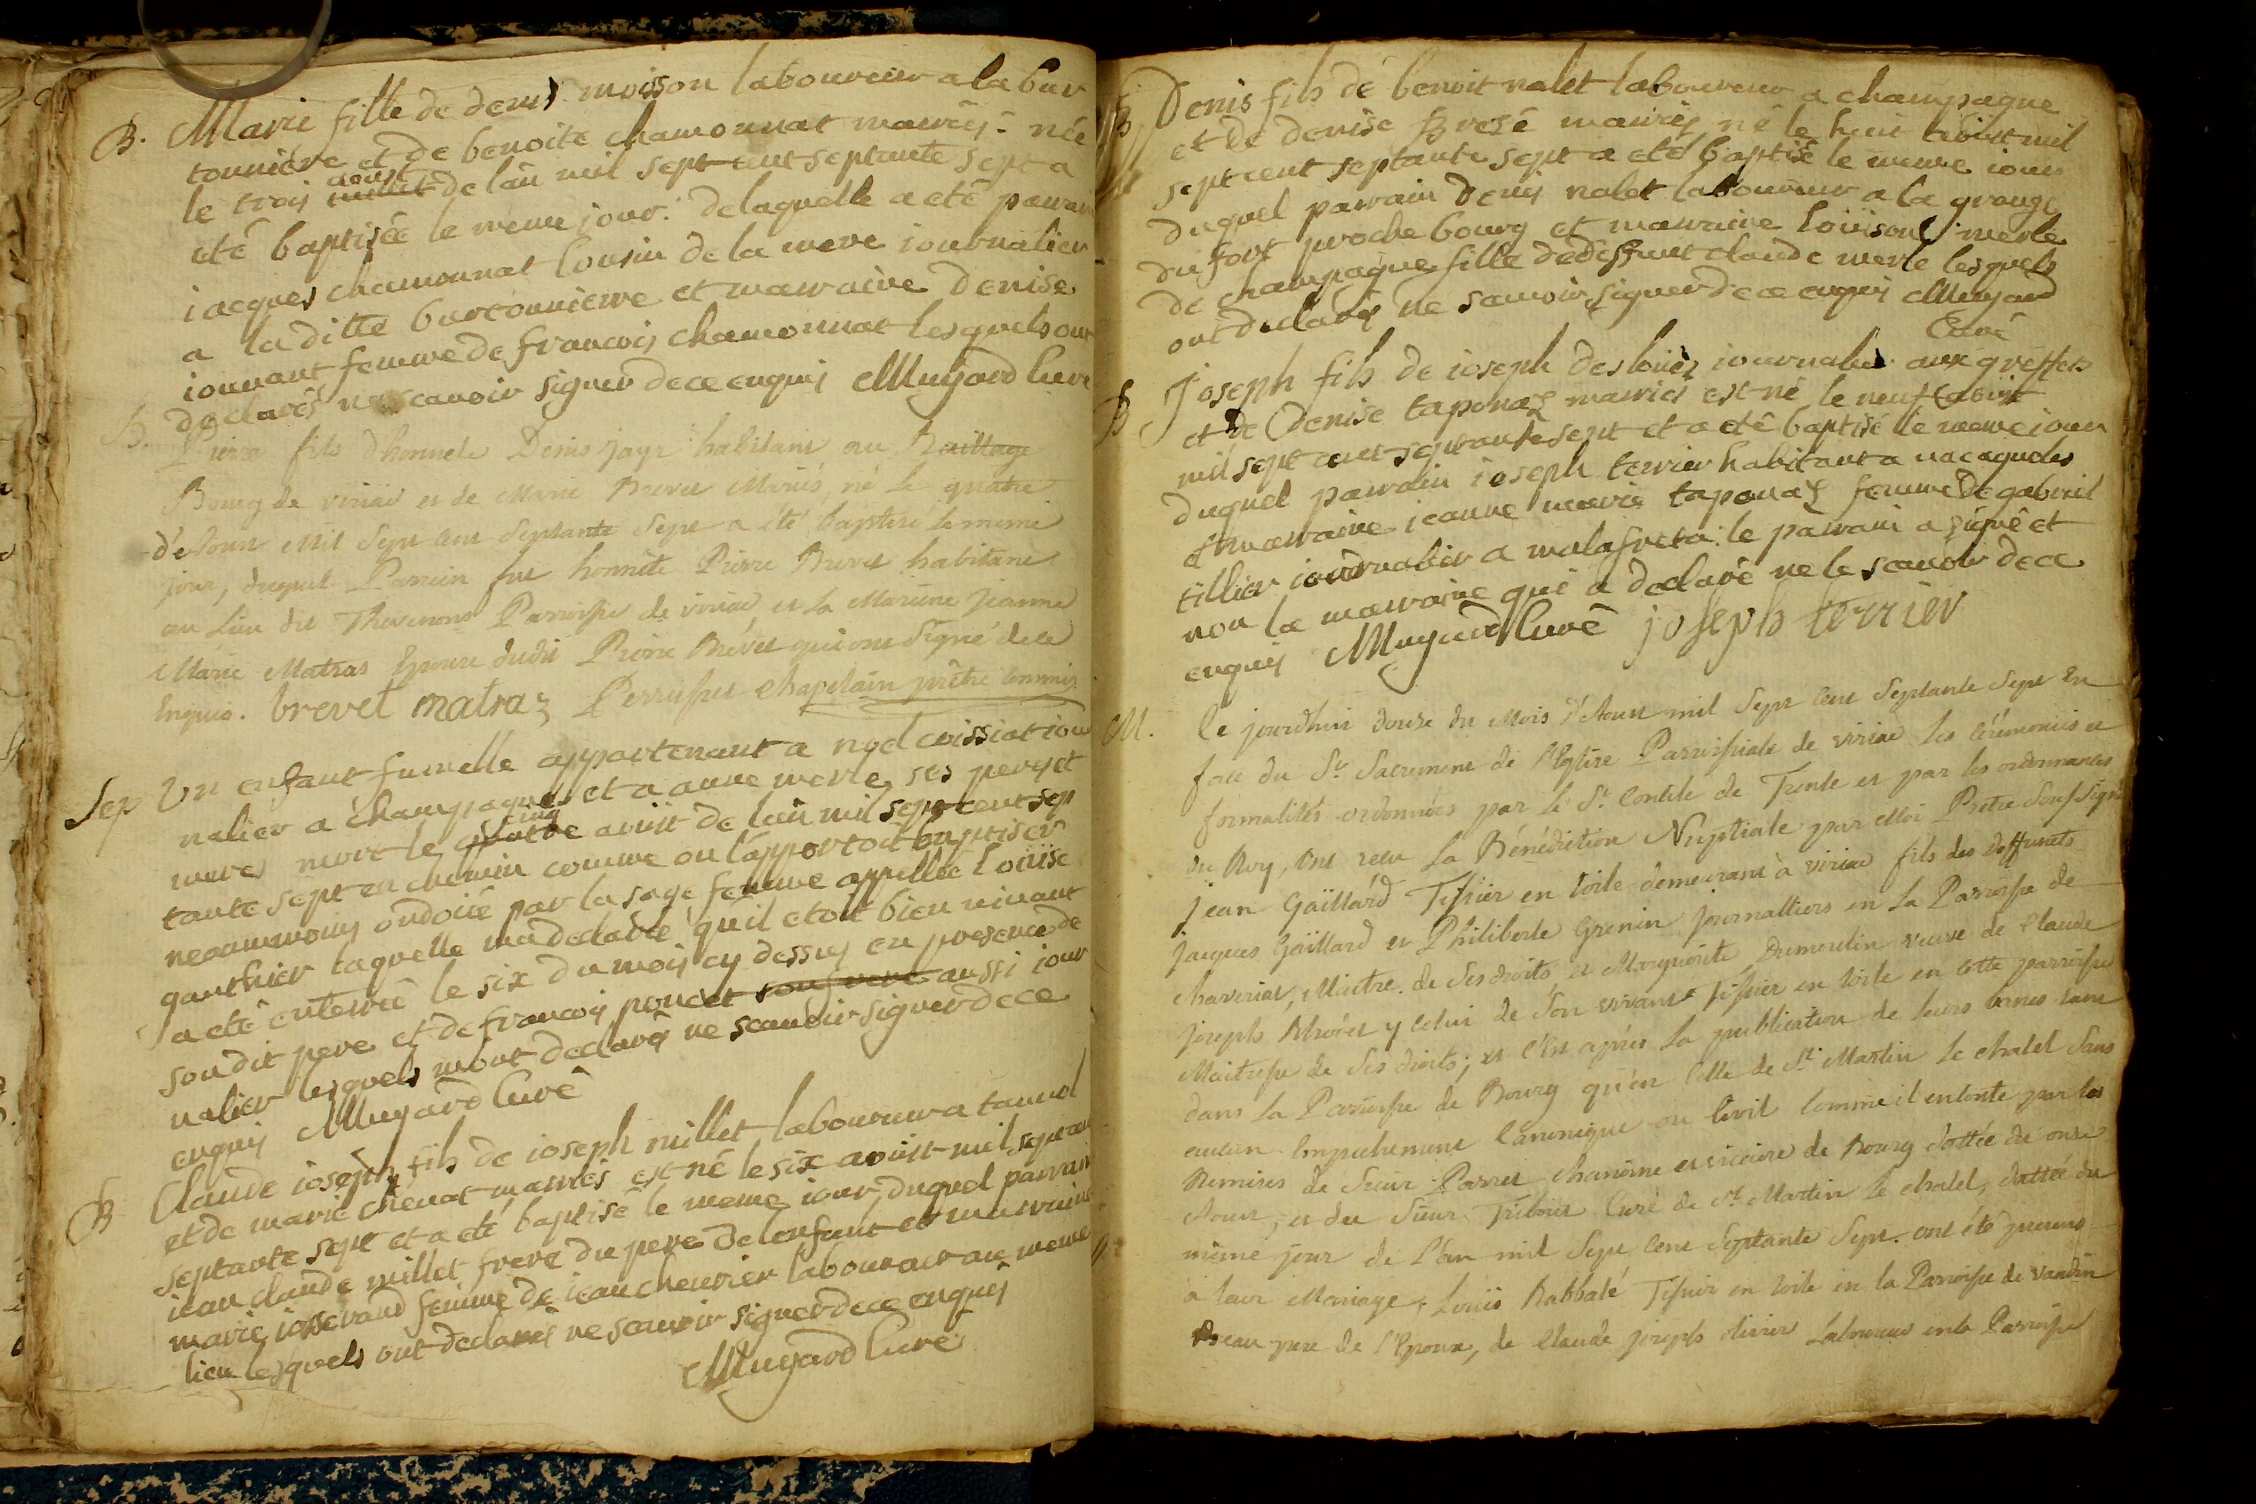 B. Marie fille de denis moisson laboureur a la bur
tonniere et de benoite chamonnat mariés: née
le trois juillet aoust de l'añ mil sept cent septante sept a
eté baptisée le meme jour: de laquelle a eté parrain
iacques chamonnat cousin de la mere iournalier
a la ditte burtonniere et marraine denise
iounant femme de francois chamonnat lesquels ont
declarés ne scavoir signer de ce enquis Mugard Curé
B. Pierre fils d'honnete Denis jayr habitant au Baillage
Bourg de viriac et de Marie Brevet Mariés, né le quatre
d'Aoust Mil Sept Cent Septante Sept a été baptisé le meme
jour, duquel Parrein fut honnête Pierre Brevet habitant
au Lieu dit Thevenons Parroisse de viriac et la Marrine jeanne
Marie Matras Epouse dudit Pierre Brevet qui ont Signé de ce
Enquis. brevet matraz Perruquet chapelain prêtre commis
Sep Un enfant fumelle appartenant a noel coissiat iour
nalier a champagne et a anne merle ses pere et
mere mort le quatre cinq aoüst de l'añ mil sept cent sep
tante sept en chemin comme on l'apportoit baptiser
neanmoins ondoiée par la sage femme appellée loüise
gauthier laquelle m'a declaré qu'il etoit bien vivant
a eté enterré le six du mois cy dessus en presence de
son dit pere et de francois poncet son frere aussi iour
nalier lesquels m'ont declarés ne scavoir signer de ce
enquis Mugard Curé
B Claude ioseph fils de ioseph millet laboureur a tannol
et de marie chenat mariés est né le six aoüst mil sept cent
septante sept et a eté baptisé le meme iour, duquel parrain
iean claude millet frere du pere de l'enfant et marraine
marie iosserand femme de iean cheurier laboureur au meme
lieu lesquels ont declarés ne scavoir signer de ce enquis
Mugard Curé
B Denis fils de benoit nalet laboureur a champagne
et de denise Brosé mariés né le huit aoüst mil
sept cent septante sept a eté baptisé le meme iour
duquel parrain denis nalet laboureur a la grange
du fort proche bourg et marraine loüison merle
de champagne fille de deffunt claude merle lesquels
ont declarés ne scavoir signer de ce enquis Mugard
Curé
B Joseph fils de ioseph desloües iournalier aux greffets
et de Denise taponaz mariés est né le neuf aoüst
mil sept cent septante sept et a eté baptisé le meme iour
duquel parrain ioseph terrier habitant a nacagnoles
et marraine ieanne marie taponaz femme de gabriel
tillier iournalier a malafreta: le parrain a signé et
non la marraine qui a declaré ne le scavoir de ce
enquis Mugard Curé joseph terrier
M. Ce jourdhuy douze du Mois d'Aoust mil Sept Cent Septante Sept En
face du St. Sacrement de l'Eglise Parroissiale de viriac les cérémonies et
formalités ordonnées par le St. Concile de Trente et par les ordonnances
du Roy, ont reçu La Bénédiction Nuptiale par Moi Pretre Soussigné
jean Gaillard Tissier en toile demeurant à viriac fils des deffunts
jacques Gaillard et Philiberte Grenin journalliers en La Parroisse de
chaveriat, Maitre de Ses droits et Marguerite Dumoulin veuve de Claude
joseph y Celui de Son vivant Tissier en toile en cette parroisse
Maitresse de Ses droits; et C'est après La publication de leurs bans tant
dans La Parroisse de Bourg qu'en Celle de St. Martin Le chatel Sans
aucun Empechement Canonique ou Civil Comme il en conste par les
Remises de Sieur Parret chanoine et vicaire de Bourg dattée du onze
Aoust, et du Sieur Tribout Curé de St. Martin Le chatel, dattée du
même jour de L'an mil Sept Cent Septante Sept. ont été presens
à leur Mariage, Louis Rabbalé Tissier en toile en la Parroisse de vandin
Beau pere de l'Epoux, de Claude joseph olivier Laboureur en la Parroisse